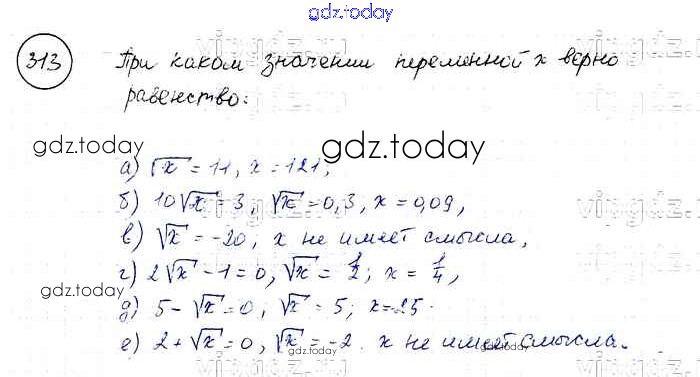 gdz.today
313 При каком значении переменной x верно
равенство:
gdz.today
gdz.today
а) √x = 11, x = 121,
б) 10√x = 3, √x = 0,3, x = 0,09,
в) √x = -20, x не имеет смысла,
г) 2√x - 1 = 0, √x = 1/2; x = 1/4,
gdz.today
д) 5 - √x = 0, √x = 5; x = 25.
е) 2 + √x = 0, √x = -2. x не имеет смысла.
gdz.today